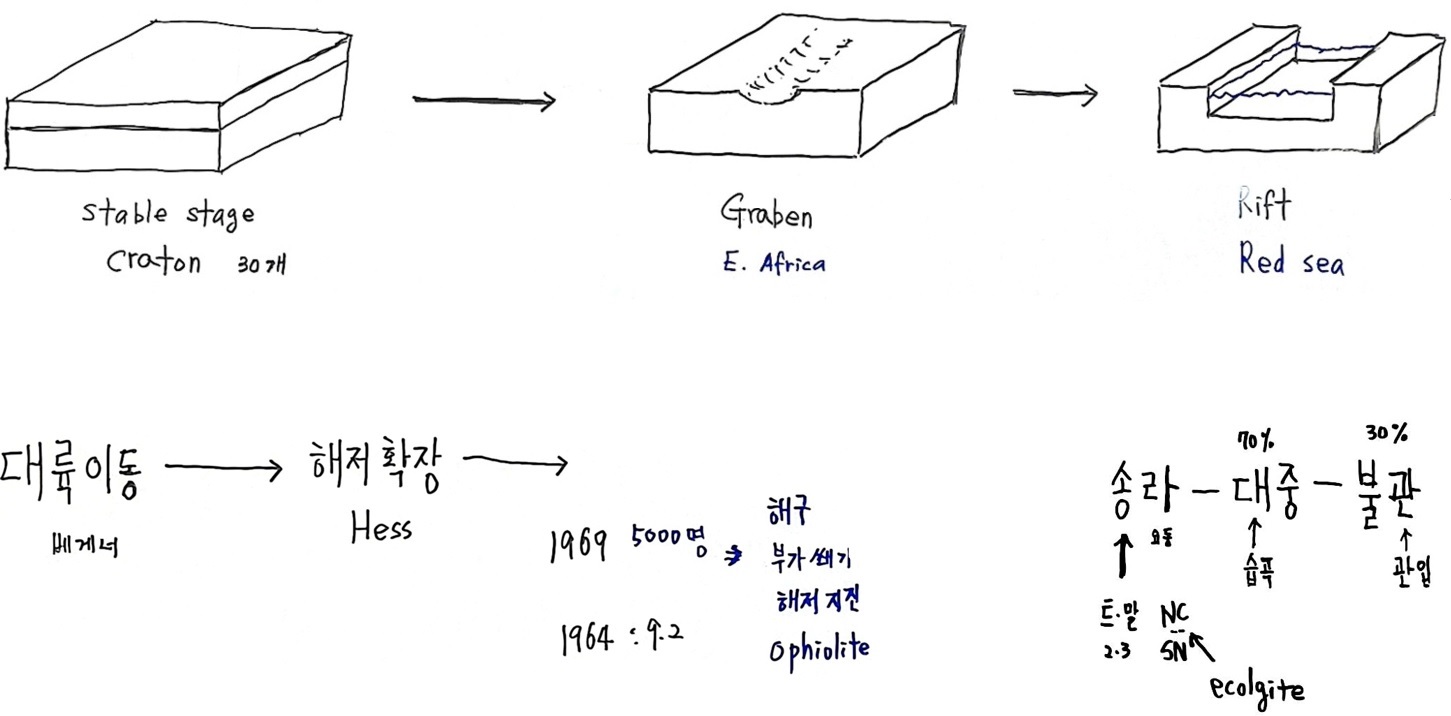 stable stage
craton 30개
Graben
E. Africa
Rift
Red sea
대륙이동
베게너
해저확장
Hess
1969 5000명
해구
부가쐐기
해저지진
ophiolite
1964 : 9.2
70% 30%
송라 - 대중 - 불관
요동
습곡
관입
트.말 NC
2.3 SN
ecolgite